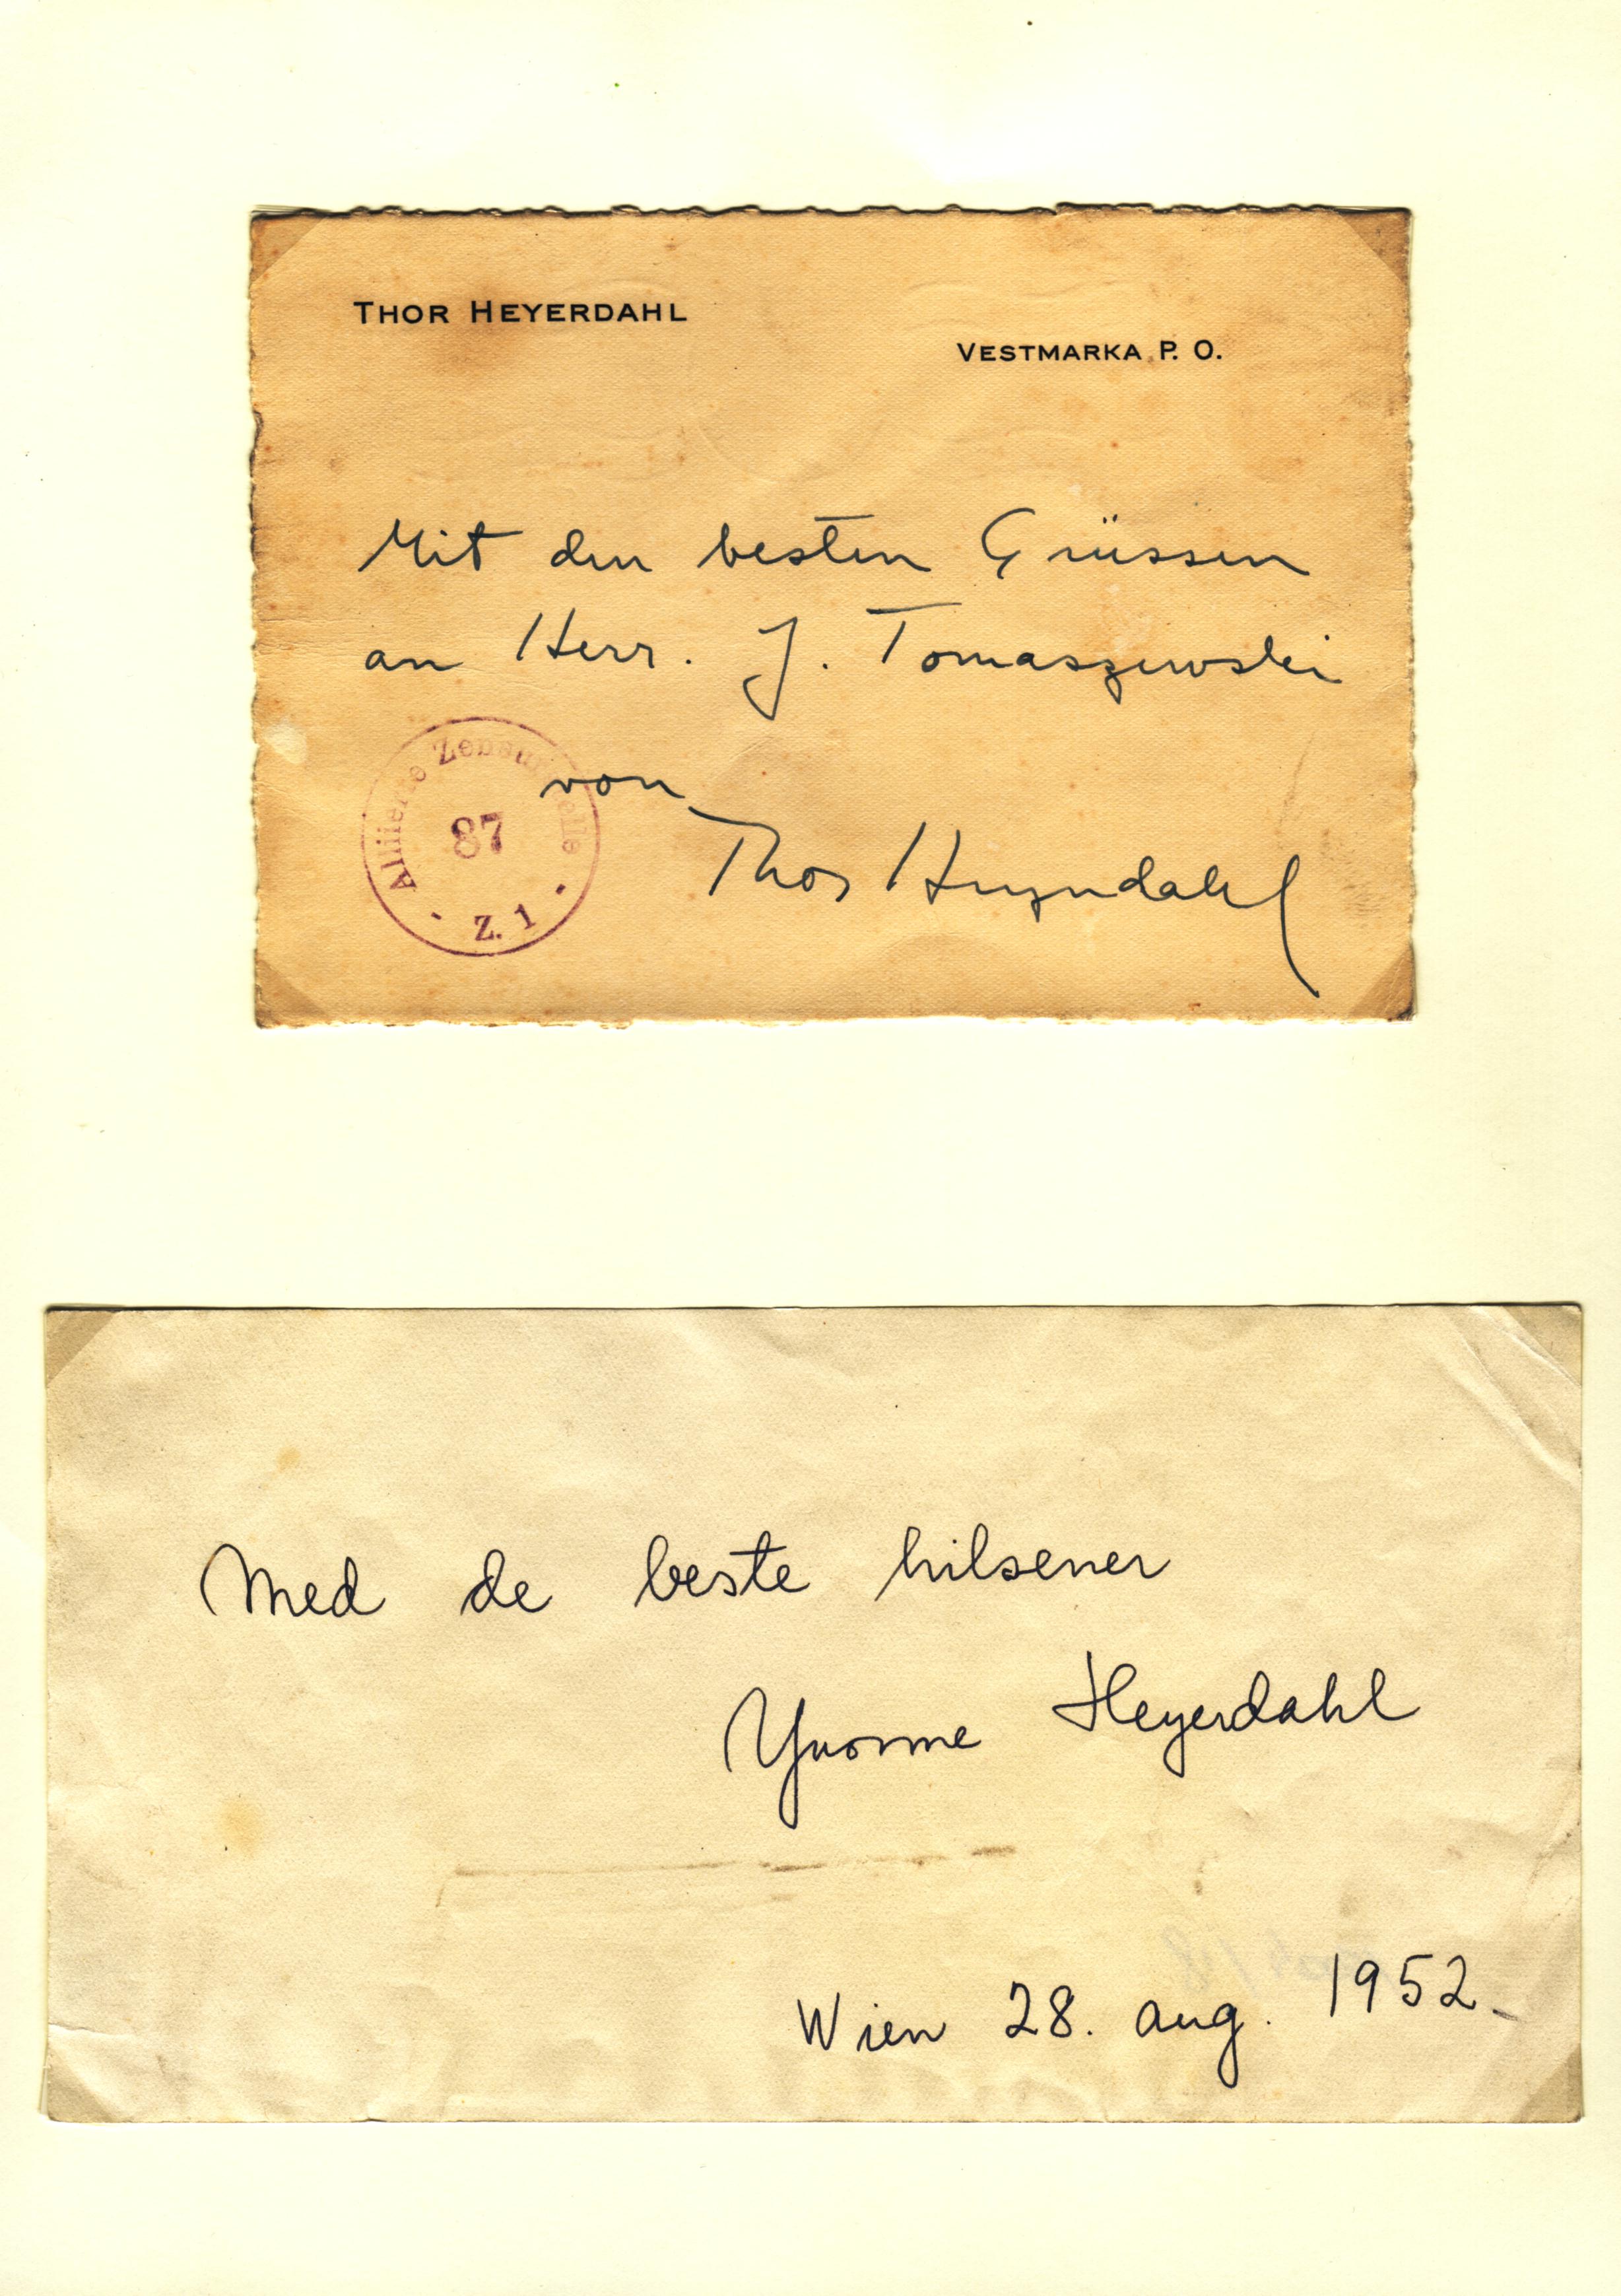 THOR HEYERDAHL
VESTMARKA P. O.
Mit den besten Grüssen
an Herr. J. Tomaszewski
von
Thor Heyerdahl
Alliierte Zensurstelle
87
· Z. 1 ·
Med de beste hilsener
Yvonne Heyerdahl
Wien 28. aug. 1952.